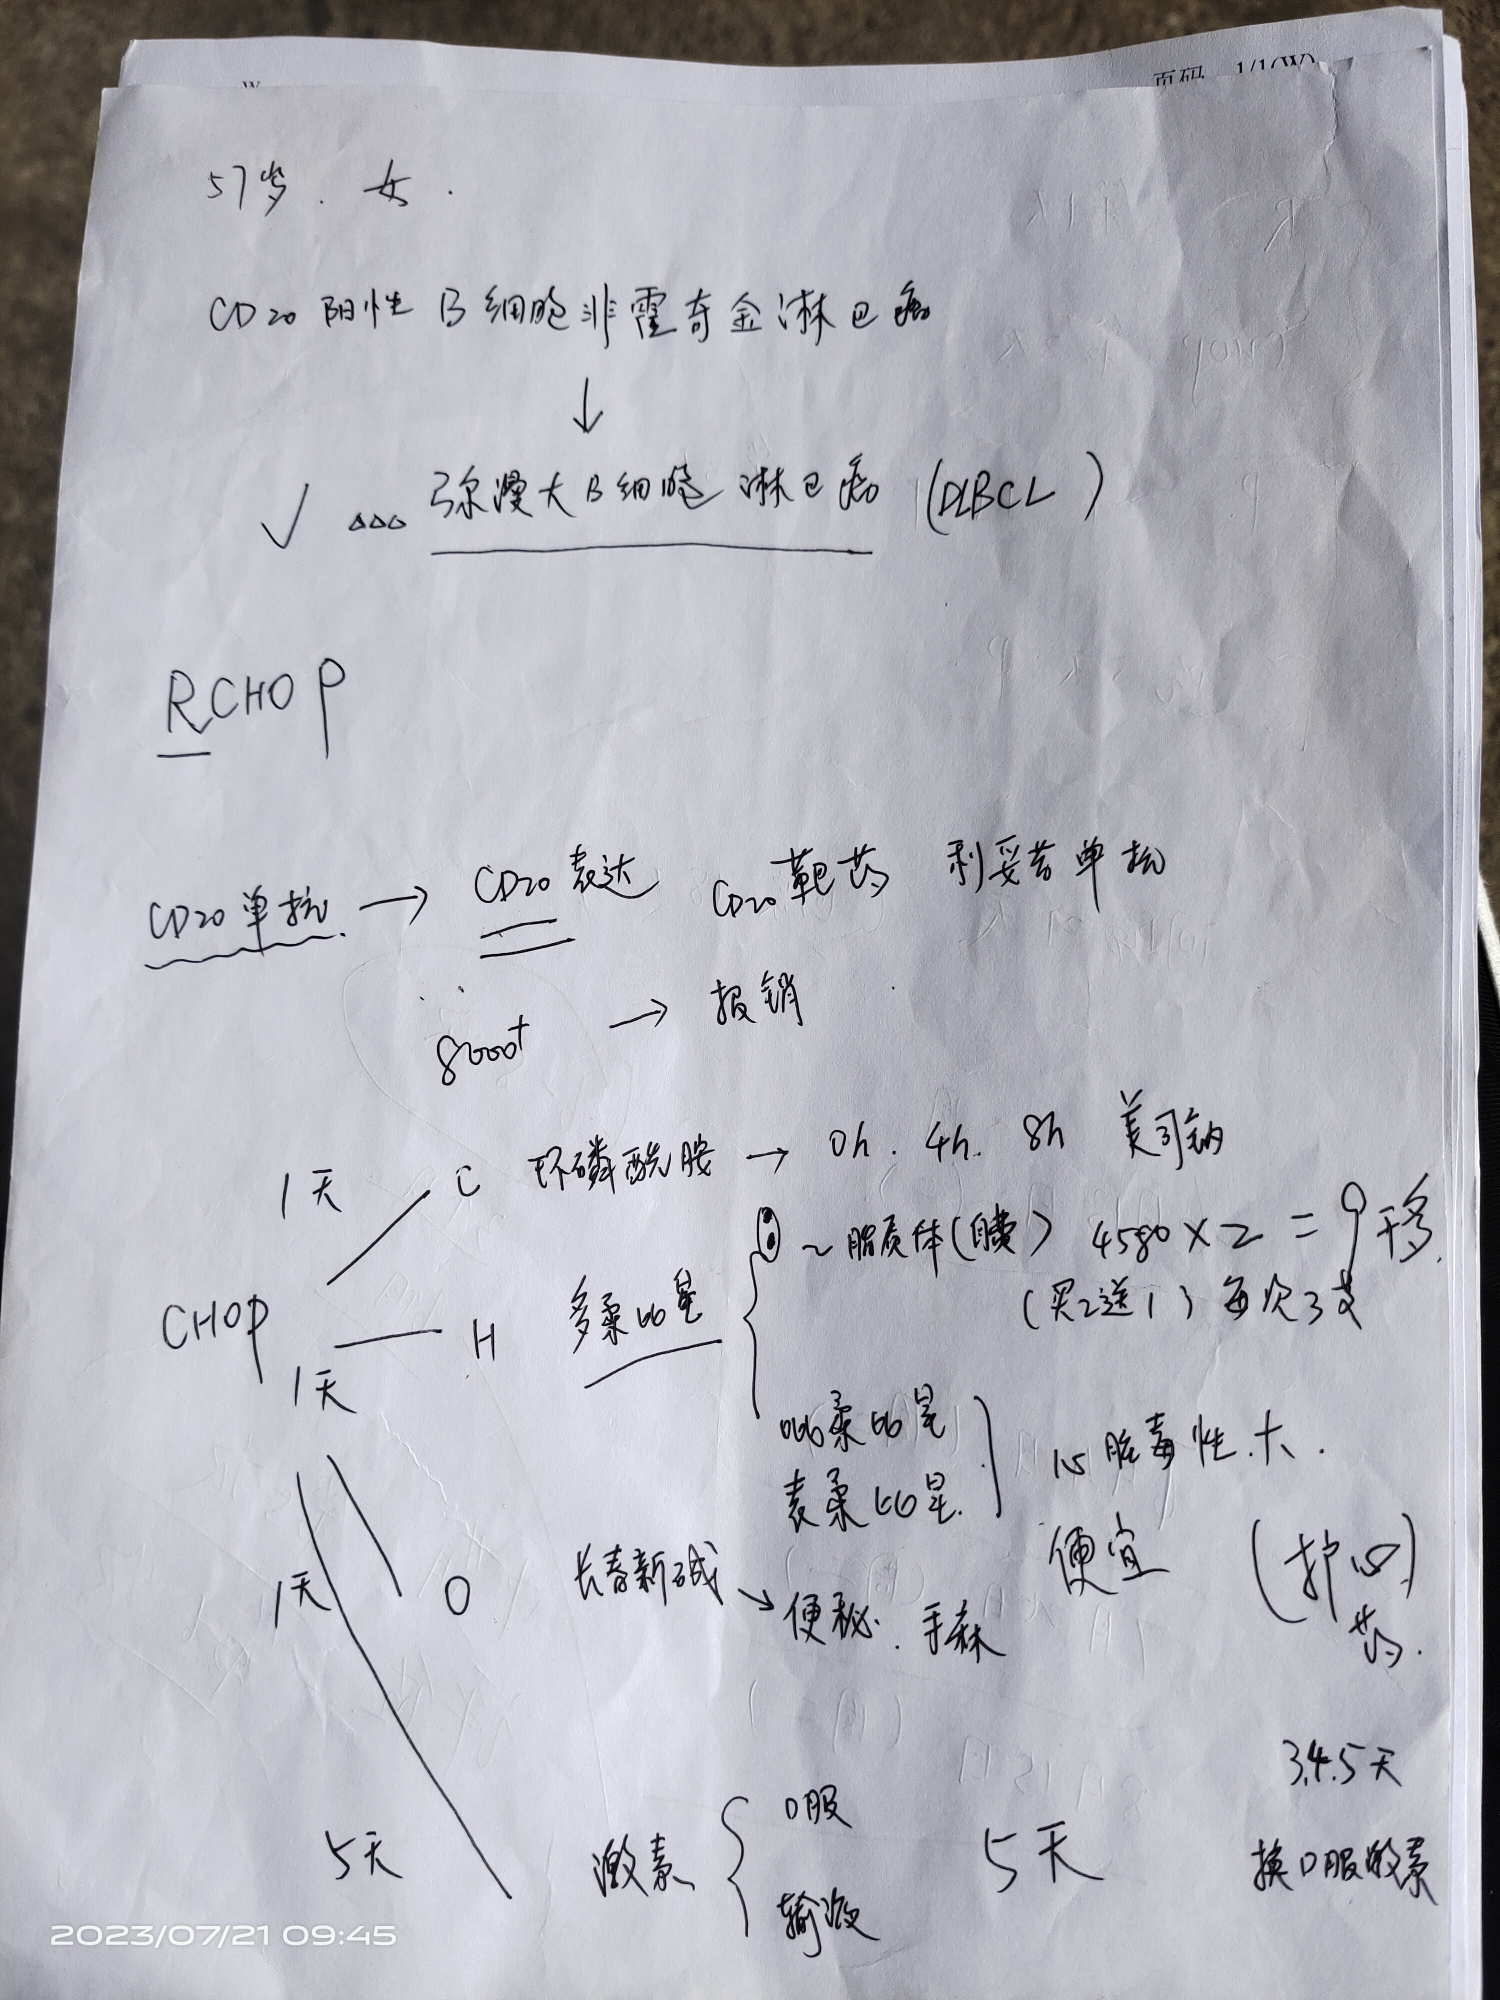 页码 1/1(W)
57岁. 女.
CD20 阳性 B细胞非霍奇金淋巴瘤
↓
✓ △△△ 弥漫大B细胞淋巴瘤 (DLBCL)
RCHOP
CD20单抗 → CD20表达 CD20靶药 利妥昔单抗
8000+ → 报销
1天 C 环磷酰胺 → 0h. 4h. 8h 美司钠
~脂质体(自费) 4580×2=9千多.
(买2送1) 每次3支
CHOP H 多柔比星
1天
吡柔比星
表柔比星. 心脏毒性.大.
便宜 (护心)药.
1天 O 长春新碱 → 便秘. 手麻
3.4.5天
口服
5天 激素 5天 换口服激素
输液
2023/07/21 09:45